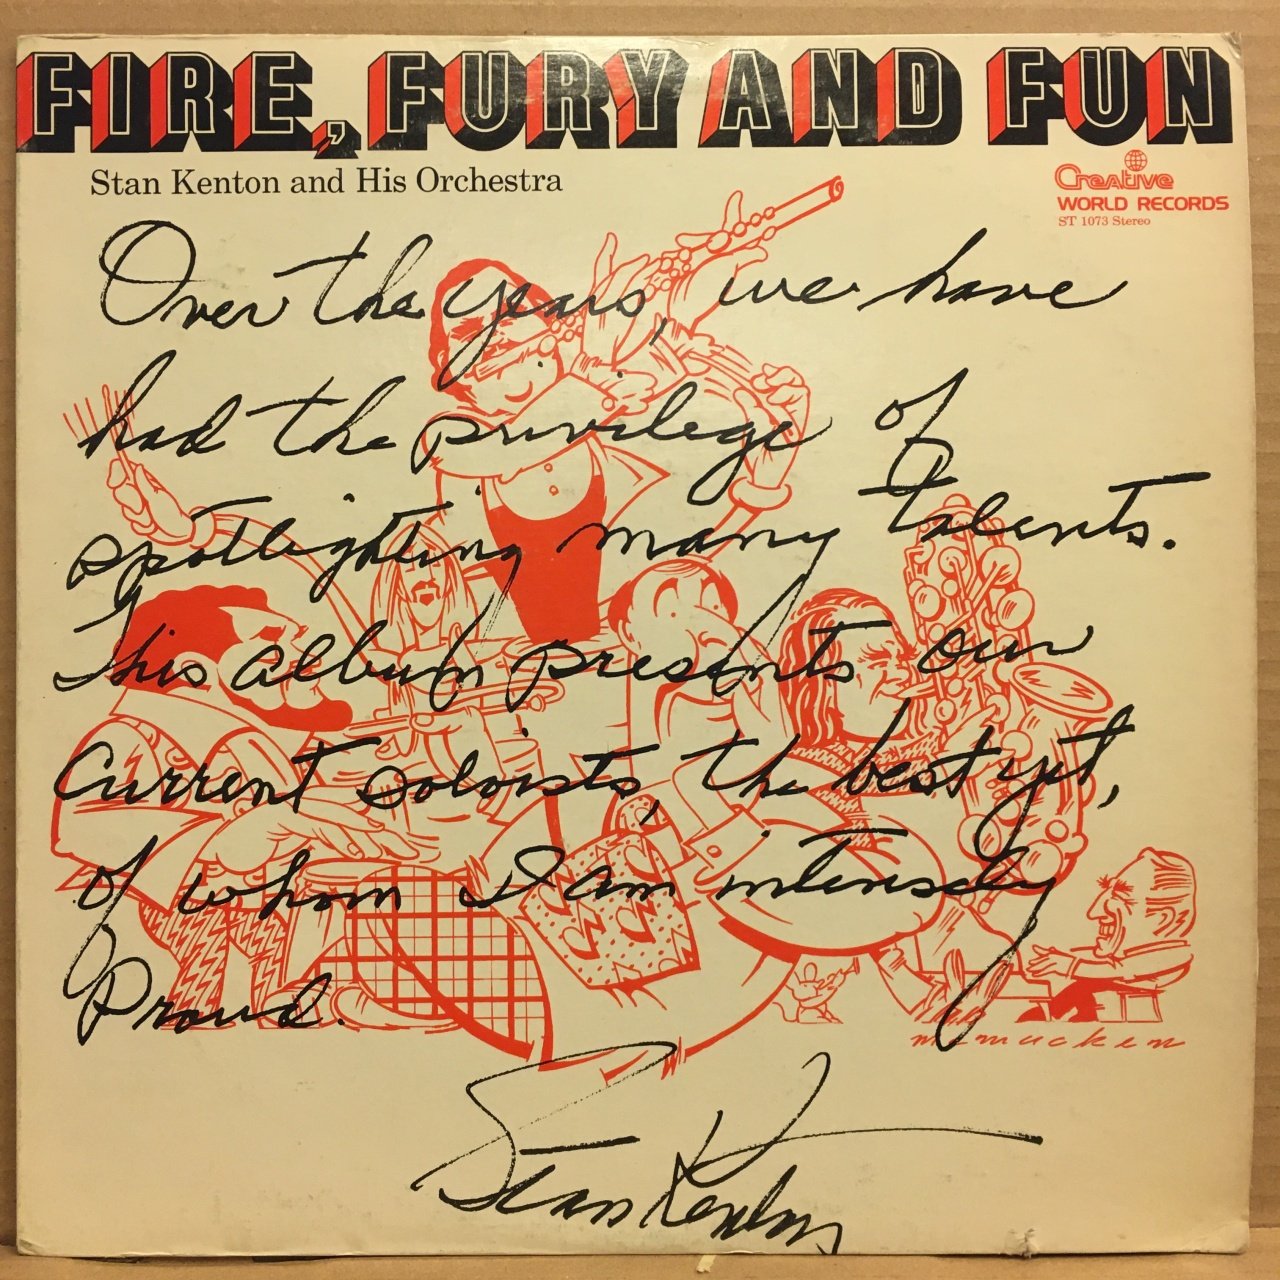 FIRE, FURY AND FUN
Stan Kenton and His Orchestra
Creative
WORLD RECORDS
ST 1073 Stereo
Over the years, we have
had the privilege of
spotlighting many talents.
This album presents our
current soloists, the best yet,
of whom I am intensely
proud.
Stan Kenton